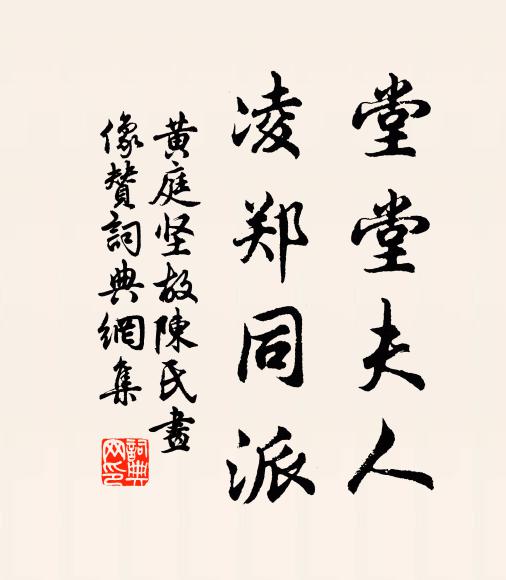 堂堂夫人
凌郑同派
黄庭坚故陳氏畫
像贊詞典網集
詞典
网印